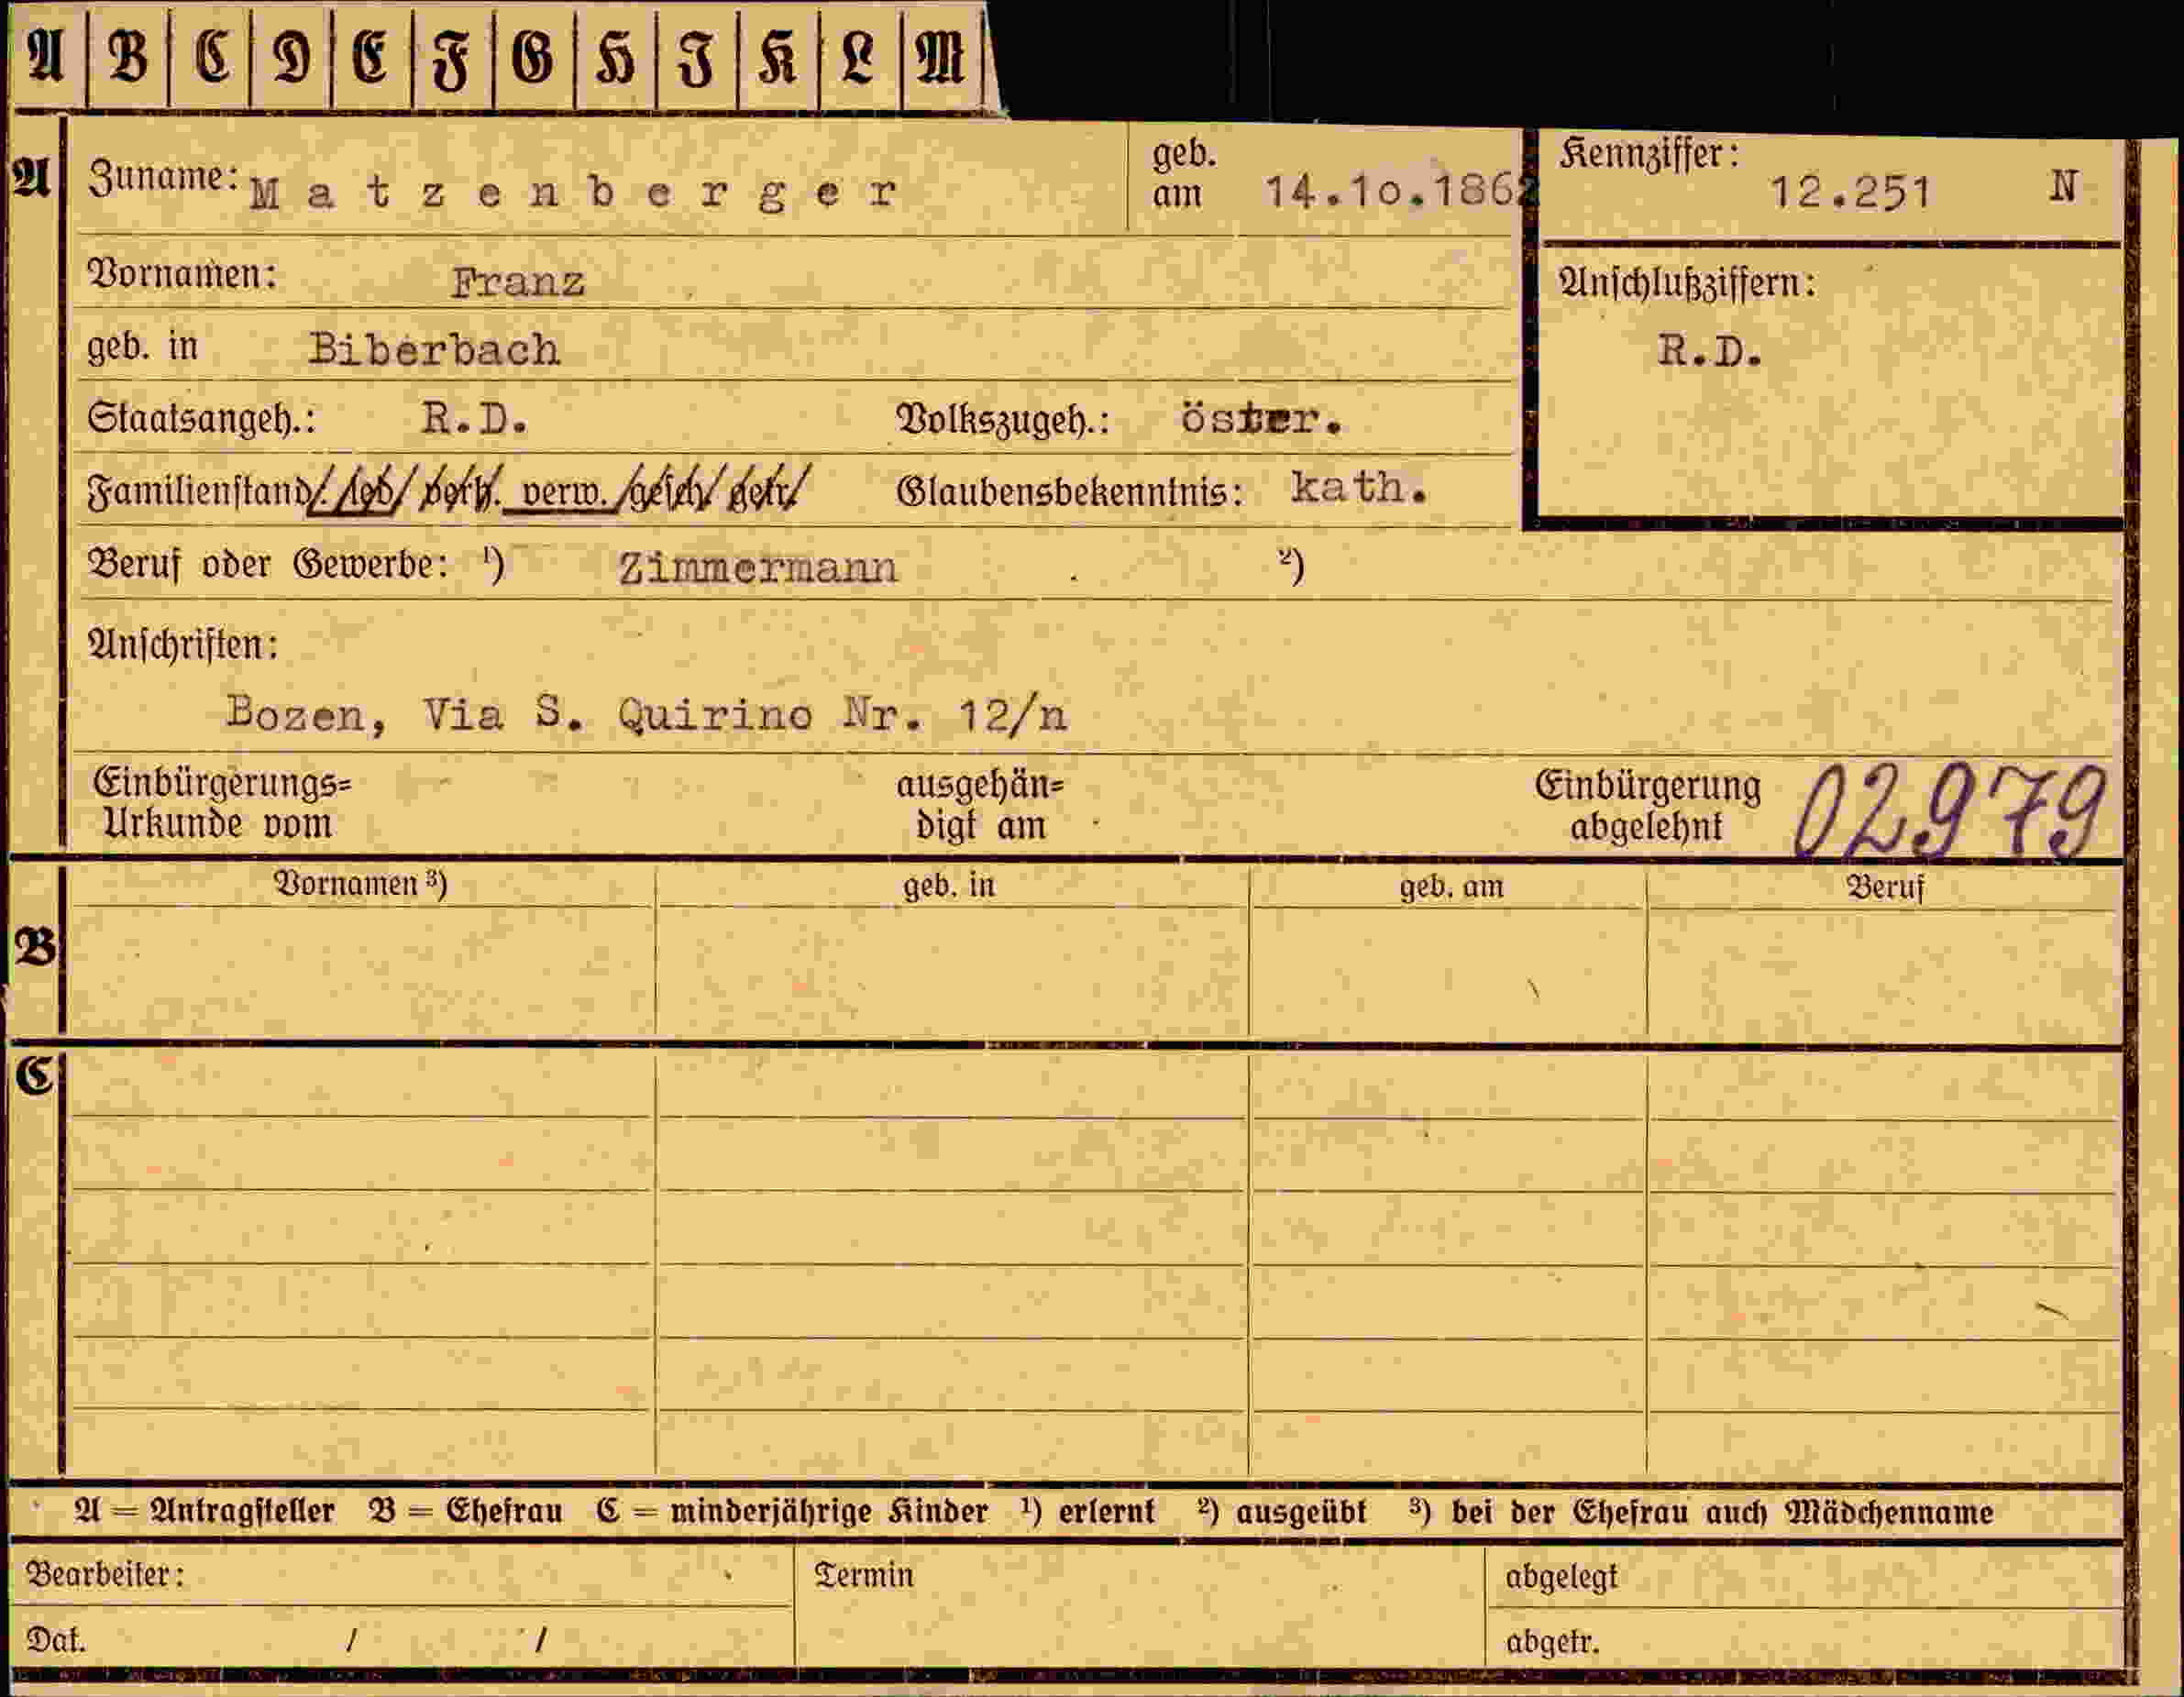 A B C D E F G H I K L M
A Zuname: Matzenberger geb. am 14.10.1862 Kennziffer: 12.251 N
Vornamen: Franz Anschlußziffern:
geb. in Biberbach R.D.
Staatsangeh.: R.D. Volkszugeh.: öster.
Familienstand: led. verh. verw. gesch. getr. Glaubensbekenntnis: kath.
Beruf oder Gewerbe: ¹) Zimmermann ²)
Anschriften:
Bozen, Via S. Quirino Nr. 12/n
Einbürgerungs= ausgehän= Einbürgerung 02979
Urkunde vom digt am abgelehnt
Vornamen ³) geb. in geb. am Beruf
B
C
A = Antragsteller B = Ehefrau C = minderjährige Kinder ¹) erlernt ²) ausgeübt ³) bei der Ehefrau auch Mädchenname
Bearbeiter: Termin abgelegt
Dat. / / abgetr.